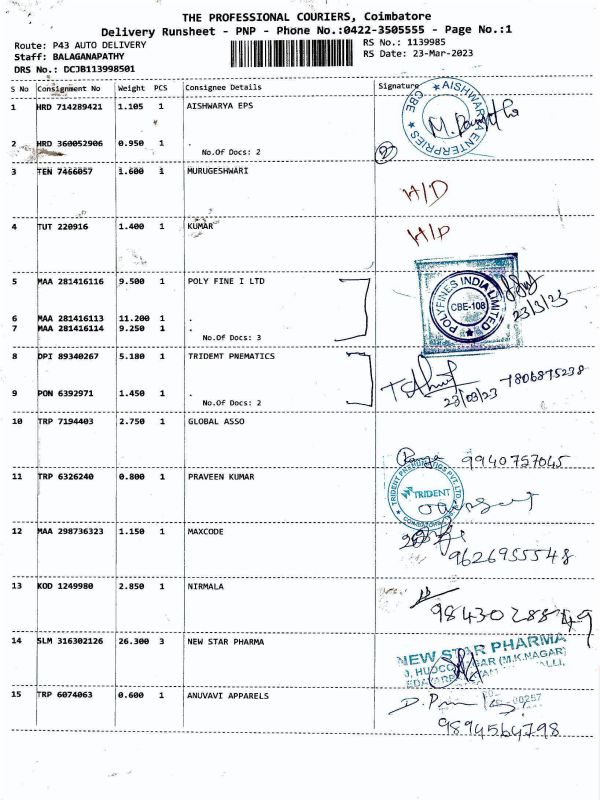 THE PROFESSIONAL COURIERS, Coimbatore
Delivery Runsheet - PNP - Phone No.:0422-3505555 - Page No.:1
Route: P43 AUTO DELIVERY
RS No.: 1139985
Staff: BALAGANAPATHY
RS Date: 23-Mar-2023
DRS No.: DCJB113998501
S No Consignment No Weight PCS Consignee Details Signature
1 HRD 714289421 1.105 1 AISHWARYA EPS
AISHWARYA ENTERPRIES CBE
2 HRD 360052906 0.950 1 .
No.Of Docs: 2
2
3 TEN 7466057 1.600 1 MURUGESHWARI
H/D
4 TUT 220916 1.400 1 KUMAR
H/D
5 MAA 281416116 9.500 1 POLY FINE I LTD
POLYFINES INDIA LIMITED
CBE-108
23/3/23
6 MAA 281416113 11.200 1 .
7 MAA 281416114 9.250 1 .
No.Of Docs: 3
8 DPI 89340267 5.180 1 TRIDEMT PNEMATICS
7806875238
23/03/23
9 PON 6392971 1.450 1 .
No.Of Docs: 2
10 TRP 7194403 2.750 1 GLOBAL ASSO
9940757045
11 TRP 6326240 0.800 1 PRAVEEN KUMAR
TRIDENT PNEUMATICS PVT. LTD
TRIDENT
12 MAA 298736323 1.150 1 MAXCODE
9626955548
13 KOD 1249980 2.850 1 NIRMALA
14 SLM 316302126 26.300 3 NEW STAR PHARMA
NEW STAR PHARMA
(M.K.NAGAR)
15 TRP 6074063 0.600 1 ANUVAVI APPARELS
9894564798